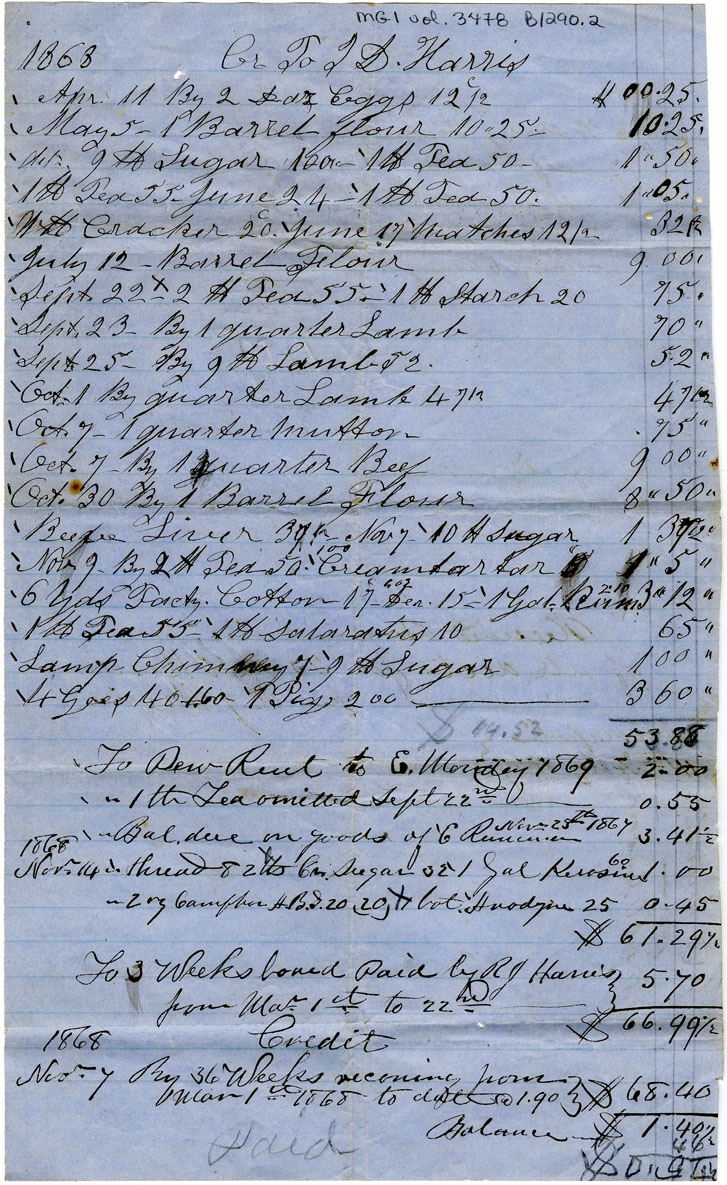 MG1 vol. 3478 B1290.2
1868 Cr To J D. Harris
Apr. 11 By 2 doz Eggs 12 1/2 $ 00.25.
May 5 - 1 Barrel flour 10.25 - 10.25.
do. 9 ℔ Sugar 100 - 1 ℔ Tea 50 - 1 " 50 "
1 ℔ Tea 55 - June 24 - 1 ℔ Tea 50. 1 " 05 "
1 ℔ Cracker 20. June 17 Matches 12 1/2 32 1/2
July 12 - Barrel Flour 9 00 "
Sept. 22 - 2 ℔ Tea 55 - 1 ℔ Starch 20 75 "
Sept. 23 - By 1 quarter Lamb 70 "
Sept 25 - By 9 ℔ Lamb 52. 52 "
Oct. 1 By quarter Lamb 47 1/2 47 1/2
Oct. 7 - 1 quarter mutton .75 "
Oct. 7 - By 1 quarter Beef 9 00 "
Oct. 30 By 1 Barrel Flour 8 " 50 "
Liver Nov 7 - 10 ℔ Sugar 1
Nov 9 - By 2 ℔ Tea 50. 100 Creamtartar 5 1 " 5 "
6 Yds Facty. Cotton 17 - 15 - 1 Gal. 3 " 12 "
1 ℔ Tea 55 - 1 ℔ Salaratus 10 65 "
Lamp Chimney 7 - 9 ℔ Sugar 1 00 "
4 Gees 40 1.60 - 1 Pig 2 00 3 60 "
$ 14.52 53.88
To Pew Rent to E. Monday 1869 2.00
" 1 ℔ Tea omitted Sept 22nd 0.55
" Bal. due on goods of Nov 25th 1867 3.41 1/2
1868
Nov. 14 " thread 8 2 ℔ Br. Sugar 32 1 Gal Kerosine 60 1.00
" 2 oz Camphor 20 bot. Anodyne 25 0.45
$ 61.29 1/2
To 3 Weeks board Paid by RJ Harris 5.70
from Mar 1st to 22nd
$ 66.99 1/2
1868 Credit
Nov. 7 By 36 Weeks reconing from
Mar 1st 1868 to date @ 1.90 $ 68.40
Balance $ 1.40 1/2
Paid